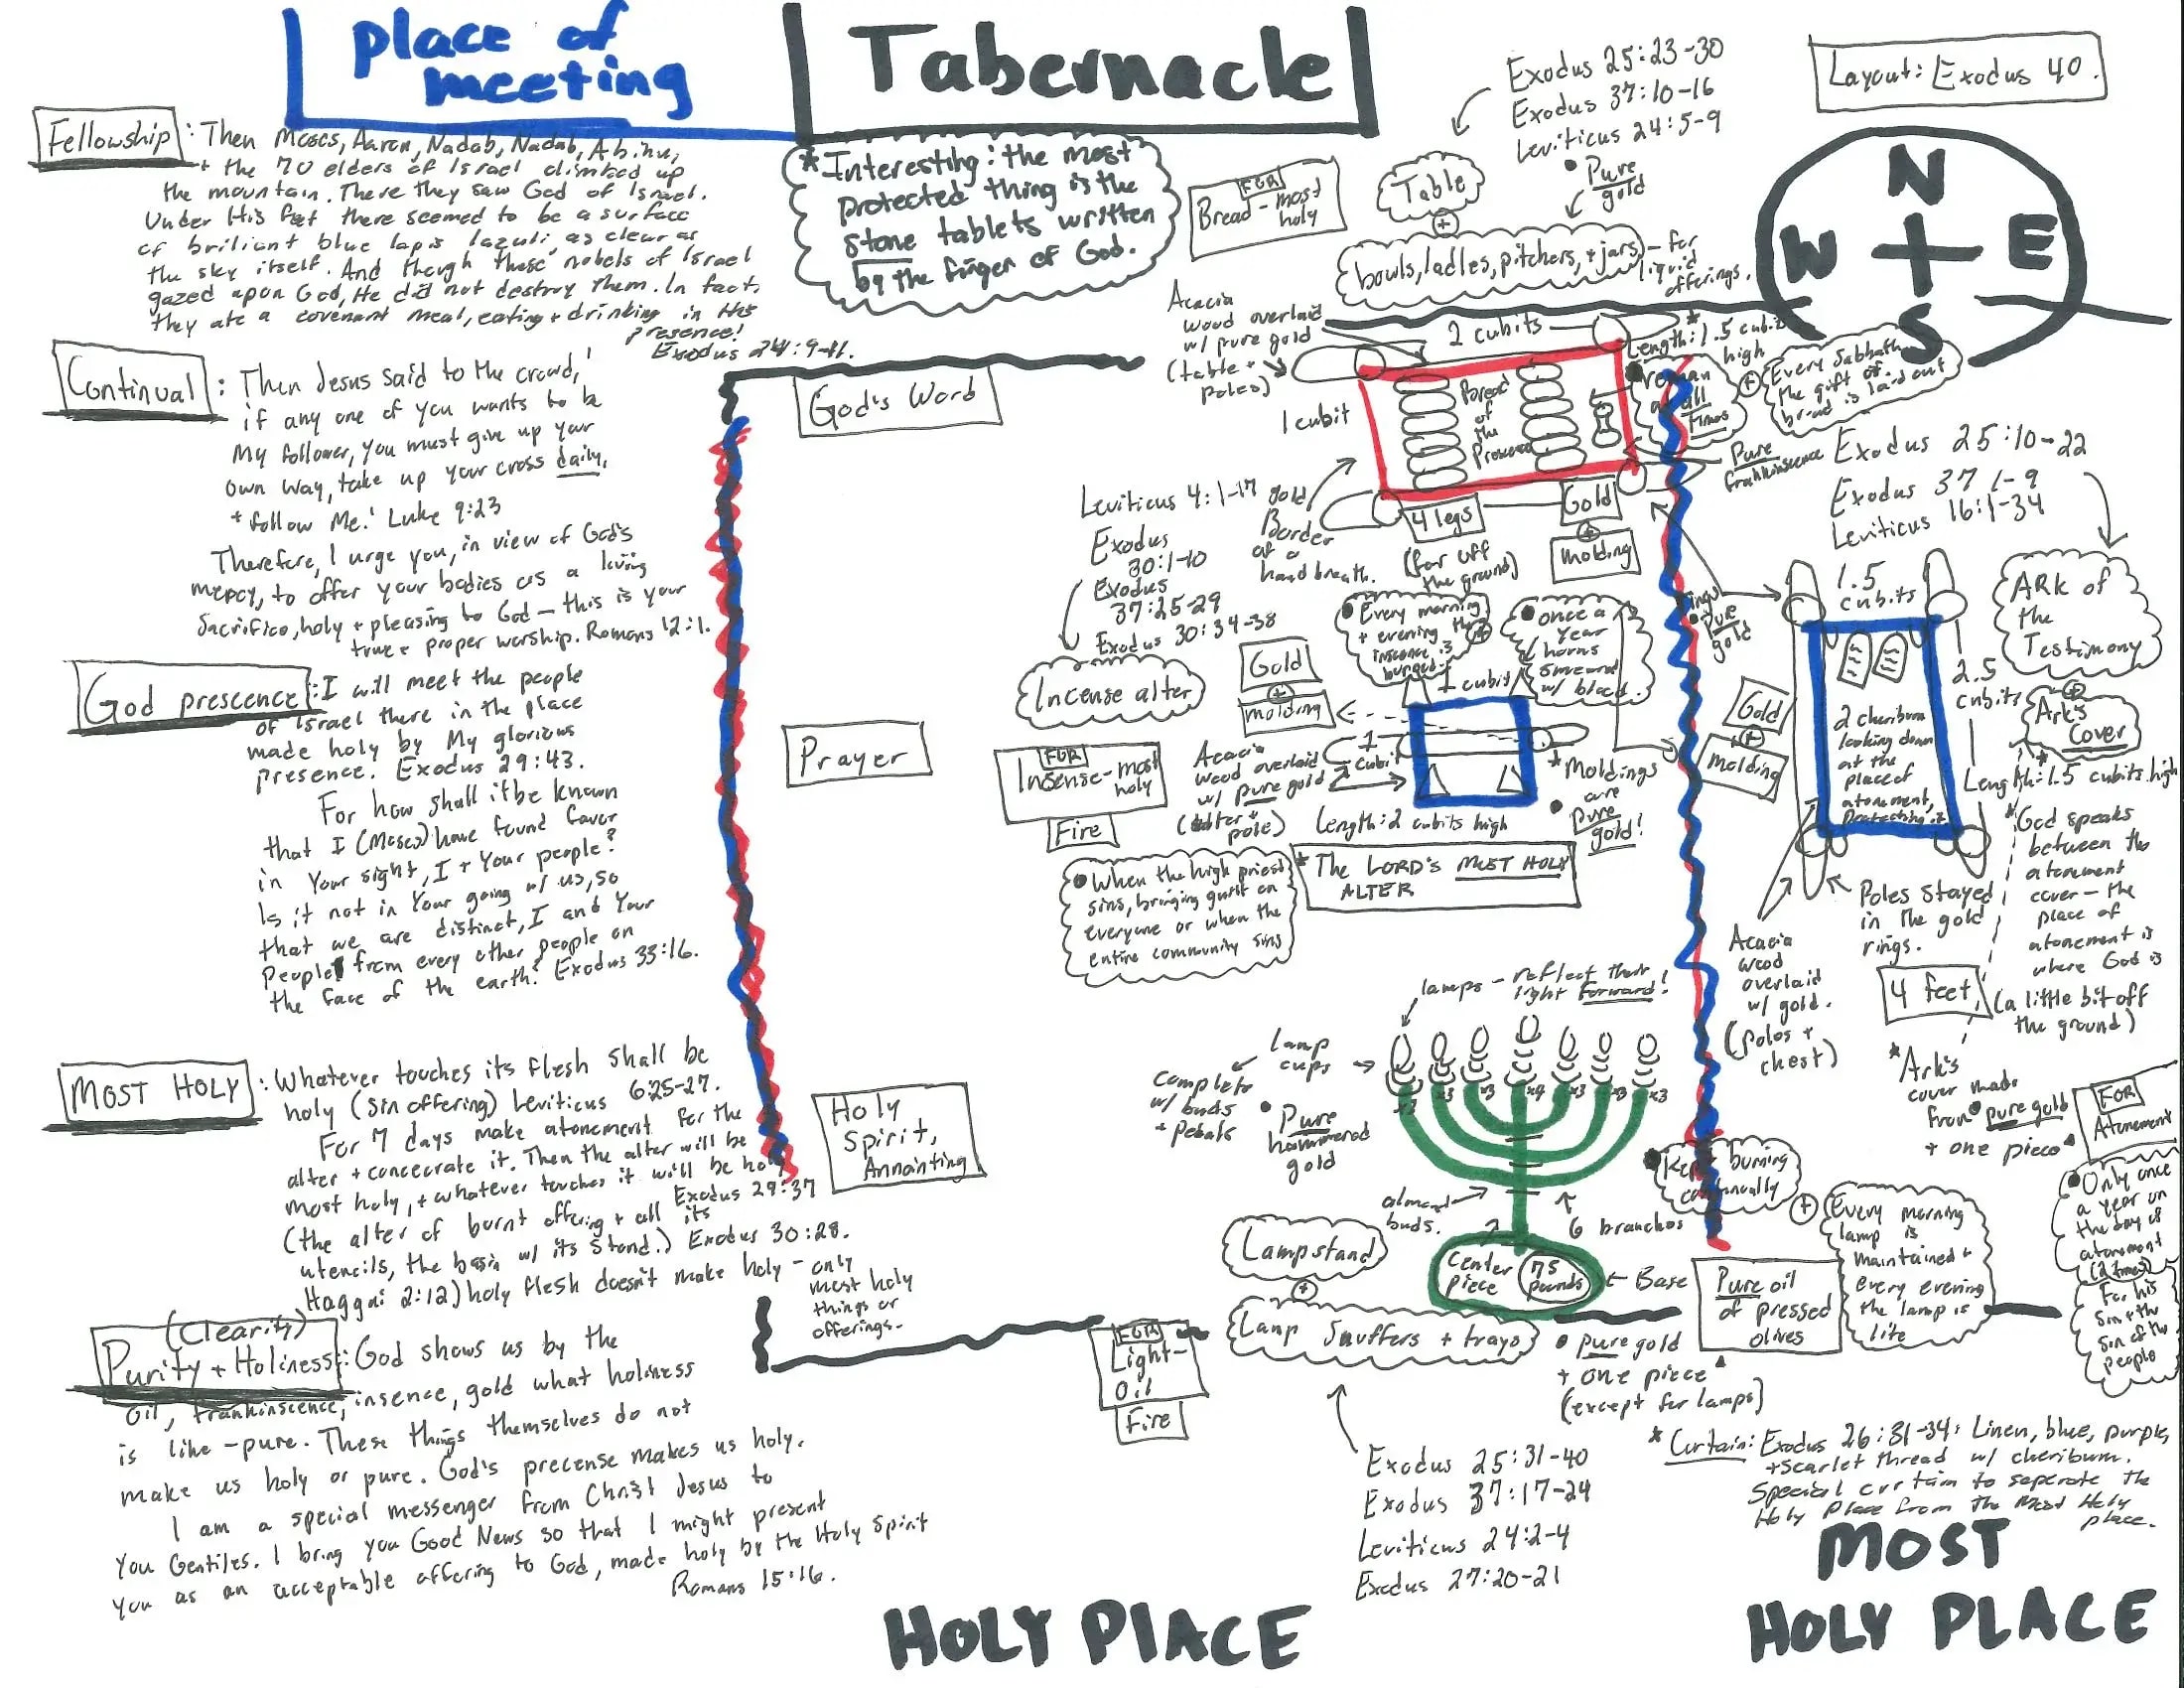 Place of
meeting
Tabernacle
Layout: Exodus 40.
Fellowship : Then Moses, Aaron, Nadab, Nadab, Abihu,
+ the 70 elders of Israel climbed up
the mountain. There they saw God of Israel.
Under His feet there seemed to be a surface
of briliant blue lapis lazuli, as clear as
the sky itself. And though these nobels of Israel
gazed upon God, He did not destroy them. In fact,
they ate a covenant meal, eating + drinking in His
presence!
Exodus 24:9-11.
Continual : Then Jesus said to the crowd, '
if any one of you wants to be
My follower, you must give up your
own way, take up your cross daily,
+ follow Me.' Luke 9:23
Therefore, I urge you, in view of God's
mercy, to offer your bodies as a living
Sacrifice, holy + pleasing to God - this is your
true + proper worship. Romans 12:1.
God prescence : I will meet the people
of Israel there in the place
made holy by My glorious
presence. Exodus 29:43.
For how shall it be known
that I (Moses) have found favor
in Your sight, I + Your people?
Is it not in Your going w/ us, so
that we are distinct, I and Your
People from every other people on
the face of the earth? Exodus 33:16.
MOST HOLY : Whatever touches its flesh shall be
holy (sin offering) Leviticus 6:25-27.
For 7 days make atonement for the
alter + concecrate it. Then the alter will be
most holy, + whatever touches it will be holy
Exodus 29:37
(the alter of burnt offering + all its
utencils, the basin w/ its stand.) Exodus 30:28.
Haggai 2:12) holy flesh doesn't make holy - only
most holy
things or
offerings.
(Clearity)
Purity + Holiness : God shows us by the
oil, frankinscence, insence, gold what holiness
is like - pure. These things themselves do not
make us holy or pure. God's precense makes us holy.
I am a special messenger from Christ Jesus to
you Gentiles. I bring you Good News so that I might present
you as an acceptable offering to God, made holy by the Holy Spirit
Romans 15:16.
* Interesting: the most
protected thing is the
stone tablets written
by the finger of God.
God's Word
Prayer
Holy
Spirit,
Annointing
FOR
Bread - most
holy
Exodus 25:23-30
Exodus 37:10-16
Leviticus 24:5-9
• Pure
gold
Table
+
bowls, ladles, pitchers, + jars - for
liquid
offerings.
N
W E
S
Acacia
wood overlaid
w/ pure gold
(table +
poles)
2 cubits
1 cubit
* Length: 1.5 cubits
high
Bread
of
the
Presence
all
times
+
Every Sabbath
the gift of
bread is laid out
Pure
frankinscence
gold
Border
at a
handbreath.
4 legs
(far off
the ground)
Gold
+
molding
Leviticus 4:1-17
Exodus
30:1-10
Exodus
37:25-29
Exodus 30:34-38
Incense alter
FOR
Insense - most
holy
Fire
Gold
+
molding
• Every morning
+ evening the
insence is
burned.
+
• once a
year
horns
smeared
w/ blood.
1 cubit
1
cubit
Acacia
wood overlaid
w/ pure gold
(alter +
pole)
Length: 2 cubits high
* Moldings
are
• pure
gold!
* The LORD'S MOST HOLY
ALTER
• When the high priest
sins, bringing guilt on
everyone or when the
entire community sins
Exodus 25:10-22
Exodus 37 1-9
Leviticus 16:1-34
ARK of
the
Testimony
+
Ark's
Cover
Rings
• Pure
gold
1.5
cubits
2.5
cubits
Length: 1.5 cubits high
Gold
+
molding
2 cheribum
looking down
at the
place of
atonement,
protecting it
* God speaks
between the
atonement
cover - the
place of
atonement is
where God is
Poles stayed
in the gold
rings.
4 feet
(a little bit off
the ground)
Acacia
wood
overlaid
w/ gold.
(poles +
chest)
* Ark's
cover made
from • pure gold
+ one piece
FOR
Atonement
• Only once
a year on
the day of
atonement
(2 times)
For his
sin + the
sin of the
people
lamps - reflect their
light forward!
lamp
cups
Complete
w/ buds
+ petals
• Pure
hammered
gold
x3 x3 x3 x4 x3 x3 x3
almond
buds.
6 branches
Center
piece
75
pounds
Base
Lampstand
+
Lamp Snuffers + trays
• pure gold
+ one piece
(except for lamps)
FOR
Light -
oil
Fire
• Kept burning
continually
+
Every morning
lamp is
maintained +
every evening
the lamp is
lite
Pure oil
of pressed
olives
Exodus 25:31-40
Exodus 37:17-24
Leviticus 24:2-4
Exodus 27:20-21
* Curtain: Exodus 26:31-34: Linen, blue, purple,
+ scarlet thread w/ cheribum.
Special curtain to seperate the
Holy Place from the Most Holy
place.
HOLY PLACE
MOST
HOLY PLACE